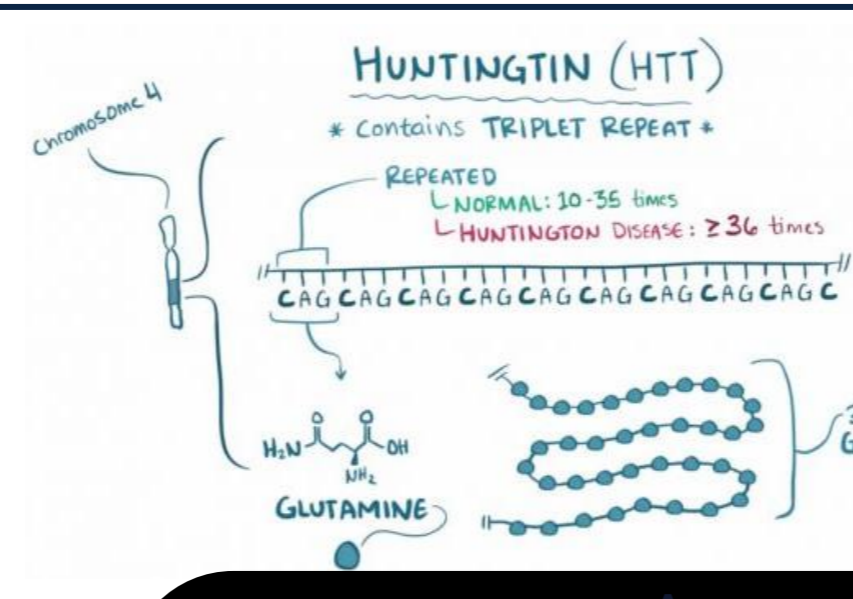 HUNTINGTIN (HTT)
Chromosome 4
* Contains TRIPLET REPEAT *
REPEATED
NORMAL: 10-35 times
HUNTINGTON DISEASE: ≥36 times
CAGCAGCAGCAGCAGCAGCAGCAGCAGC
H₂N
O
O
OH
NH₂
GLUTAMINE